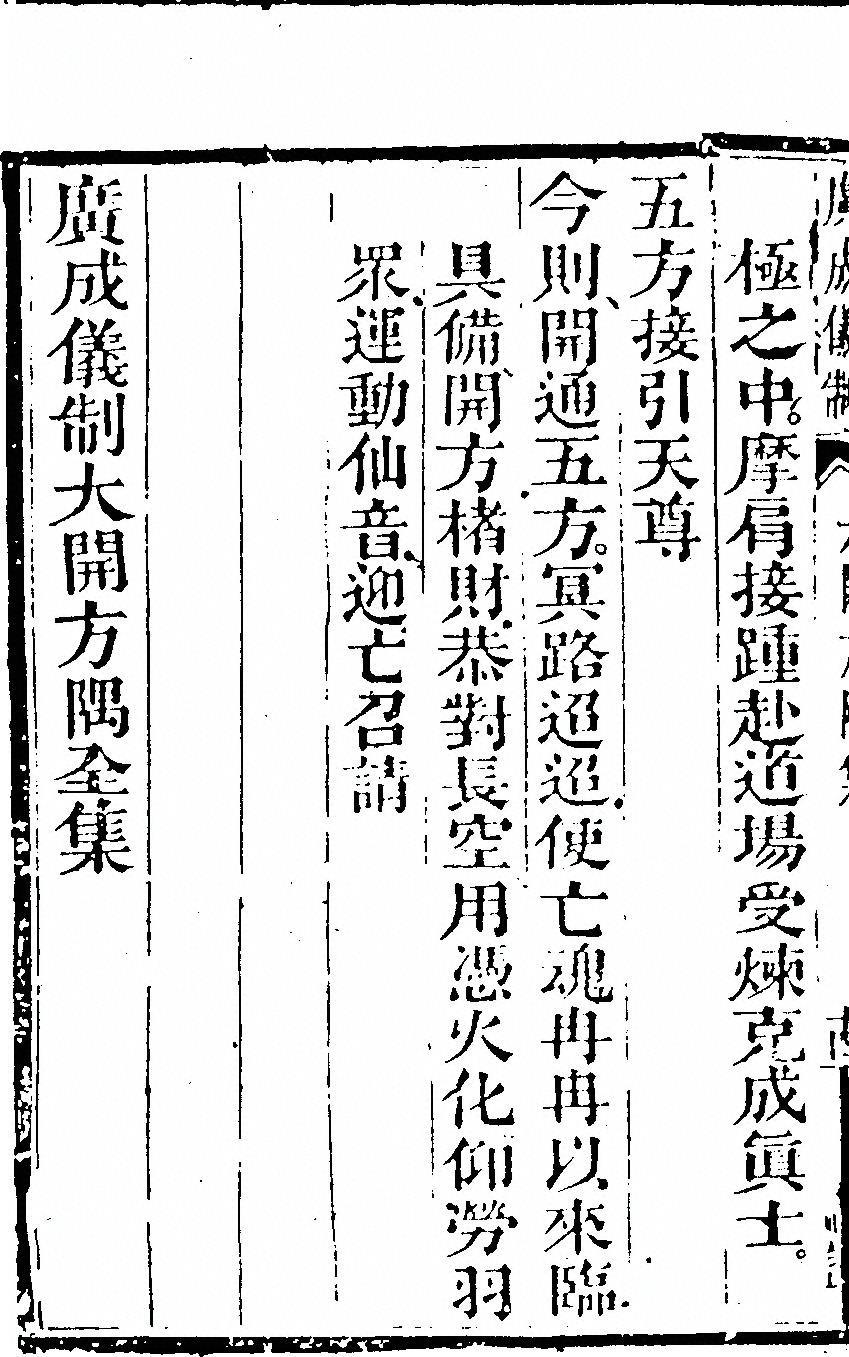 廣成儀制
極之中。摩肩接踵赴道場受煉克成眞士。
五方接引天尊
今則、開通五方。冥路迢迢、使亡魂冉冉以來臨、
具備、開方楮財、恭對長空用憑火化仰勞羽
眾、運動仙音、迎亡召請
廣成儀制大開方隅全集